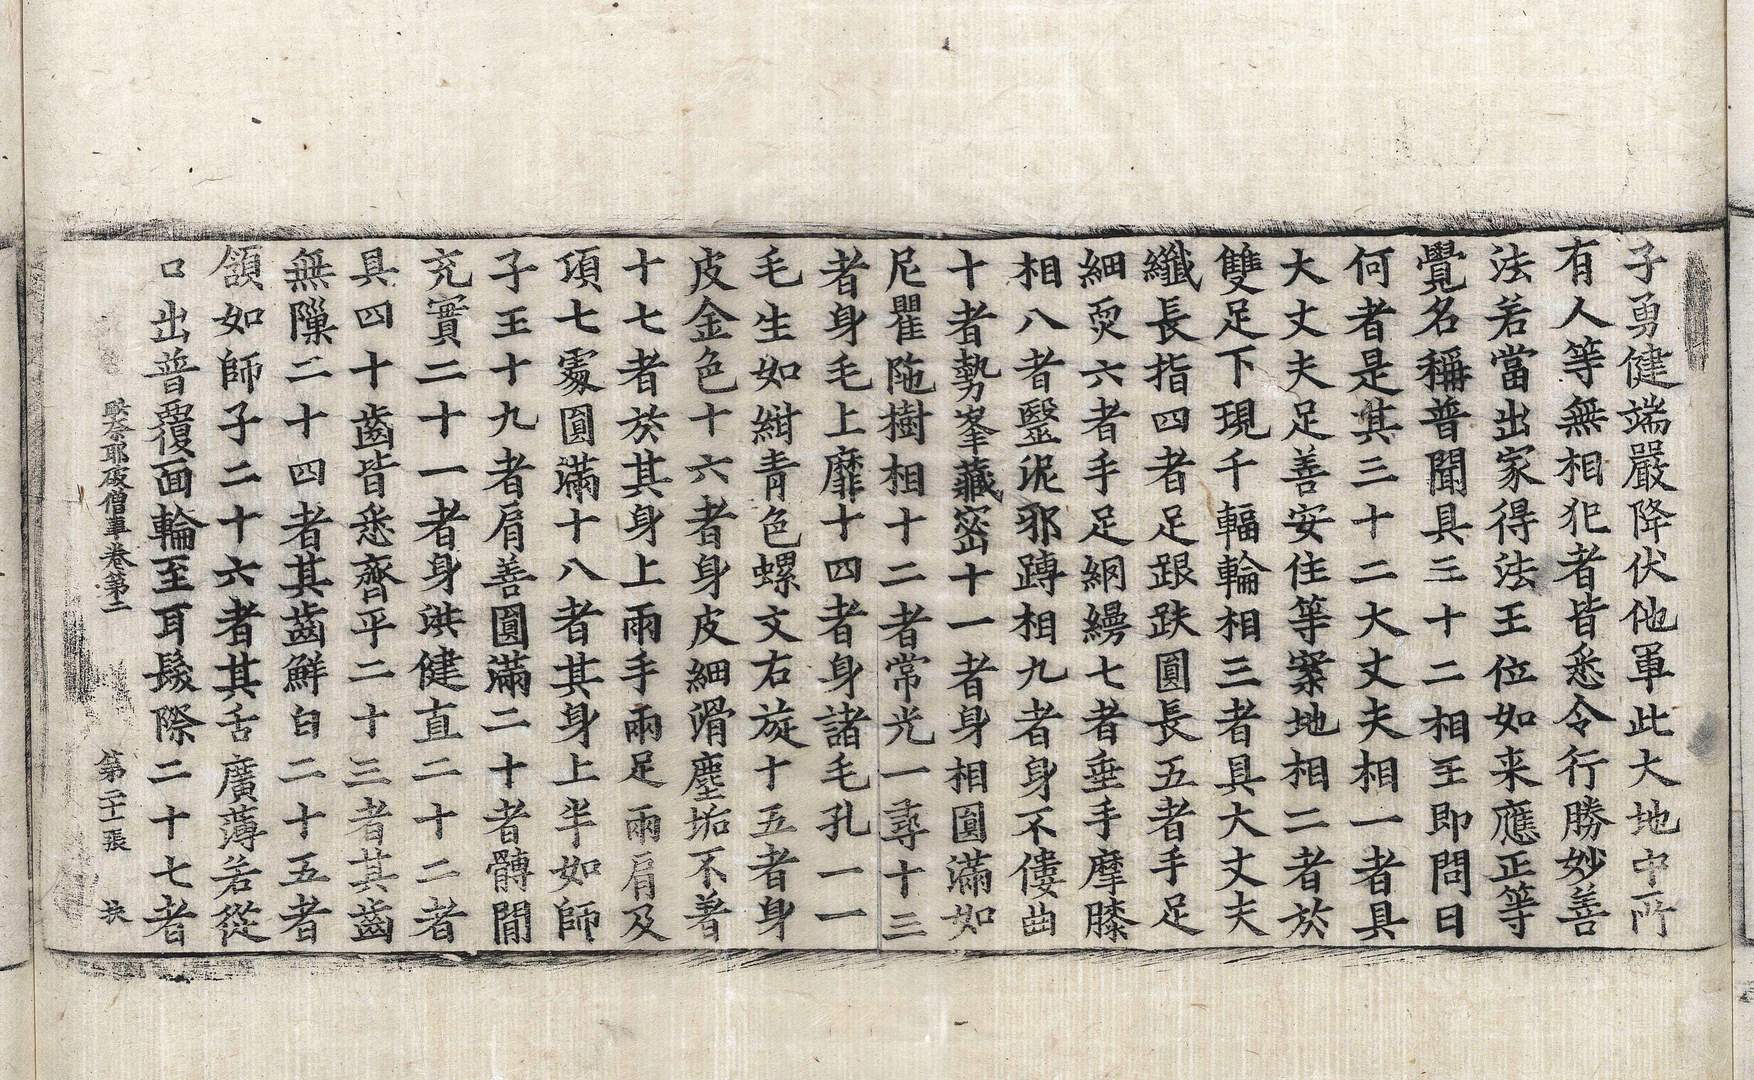 子勇健端嚴降伏他軍此大地中所
有人等無相犯者皆悉令行勝妙善
法若當出家得法王位如来應正等
覺名稱普聞具三十二相王即問曰
何者是其三十二大丈夫相一者具
大丈夫足善安住等案地相二者於
雙足下現千輻輪相三者具大丈夫
纖長指四者足跟趺圓長五者手足
細耎六者手足網縵七者垂手摩膝
相八者瑿泥邪蹲相九者身不僂曲
十者勢峯藏密十一者身相圓滿如
尼瞿陁樹相十二者常光一尋十三
者身毛上靡十四者身諸毛孔一一
毛生如紺青色螺文右旋十五者身
皮金色十六者身皮細滑塵垢不著
十七者於其身上兩手兩足兩肩及
項七處圓滿十八者其身上半如師
子王十九者肩善圓滿二十者髆間
充實二十一者身洪健直二十二者
具四十齒皆悉齊平二十三者其齒
無隟二十四者其齒鮮白二十五者
頷如師子二十六者其舌廣薄若從
口出普覆面輪至耳髮際二十七者
奈耶破僧事卷第二 第二十張 扶